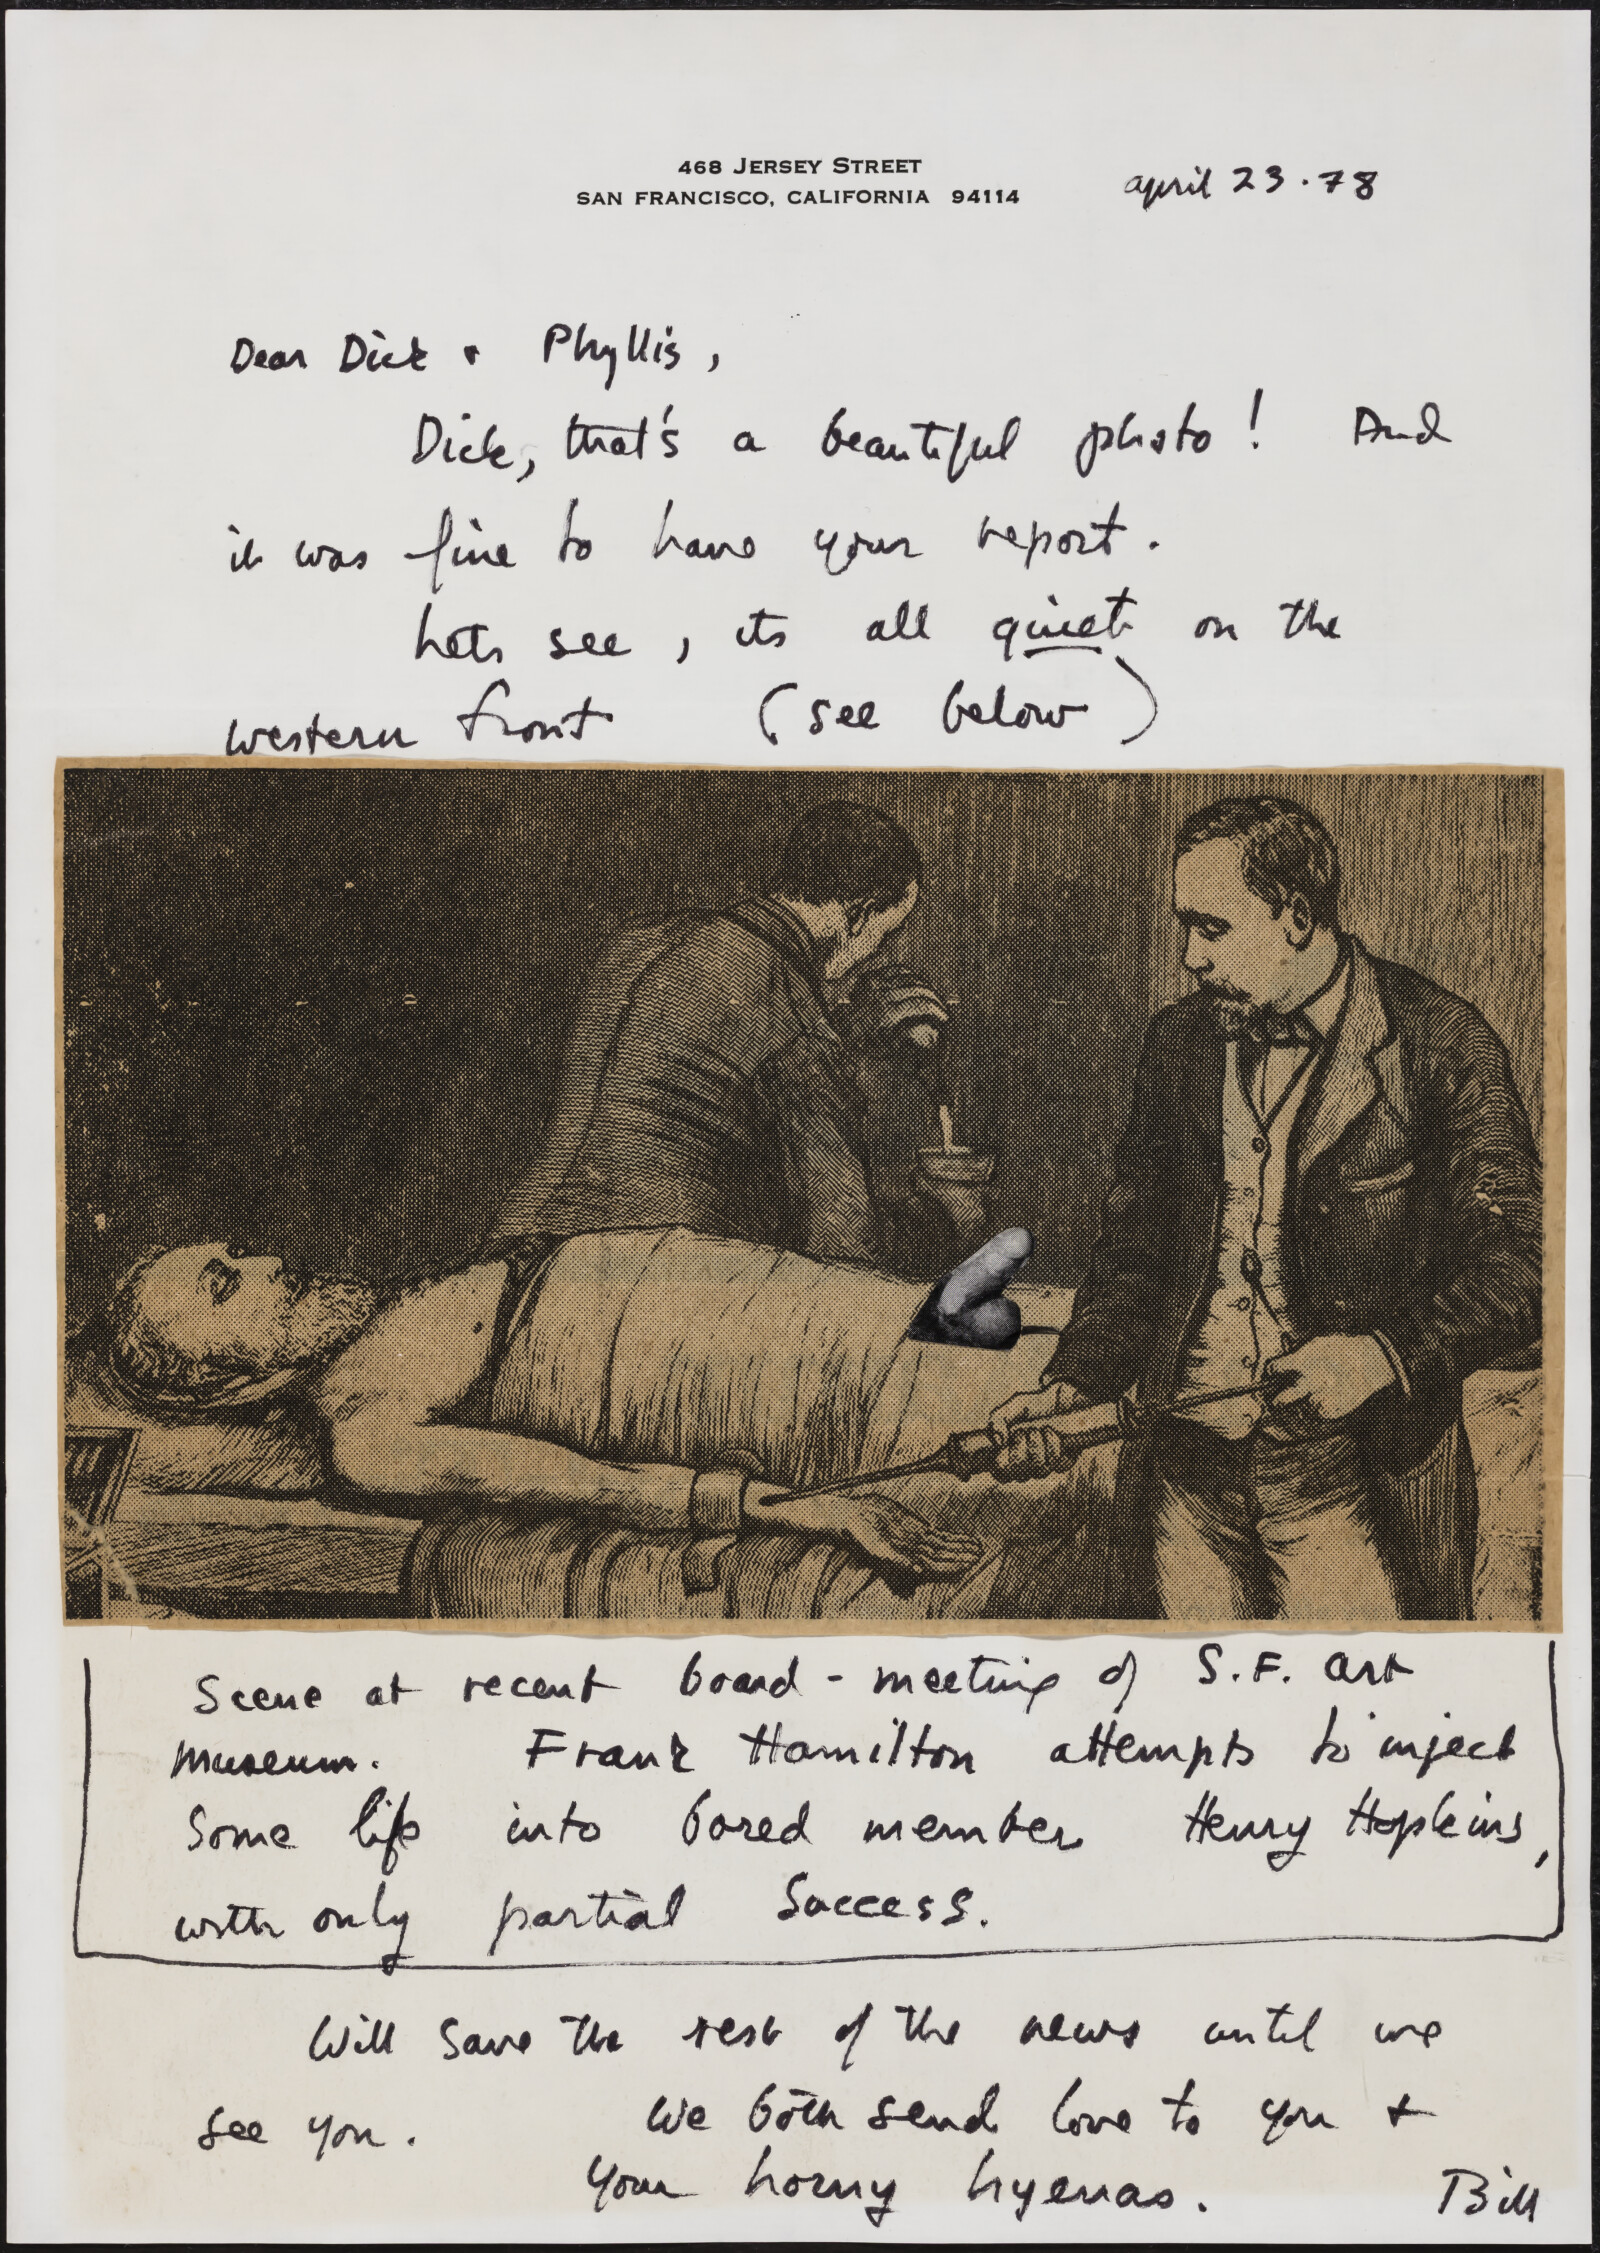 468 JERSEY STREET
SAN FRANCISCO, CALIFORNIA 94114
april 23.78
Dear Dick + Phyllis,
Dick, that's a beautiful photo! And
it was fine to have your report.
Lets see, its all quiet on the
western front (see below)
Scene at recent board-meeting of S.F. Art
Museum. Frank Hamilton attempts to inject
some life into bored member Henry Hopkins,
with only partial success.
Will save the rest of the news until we
see you. We both send love to you +
your horny hyenas.
Bill